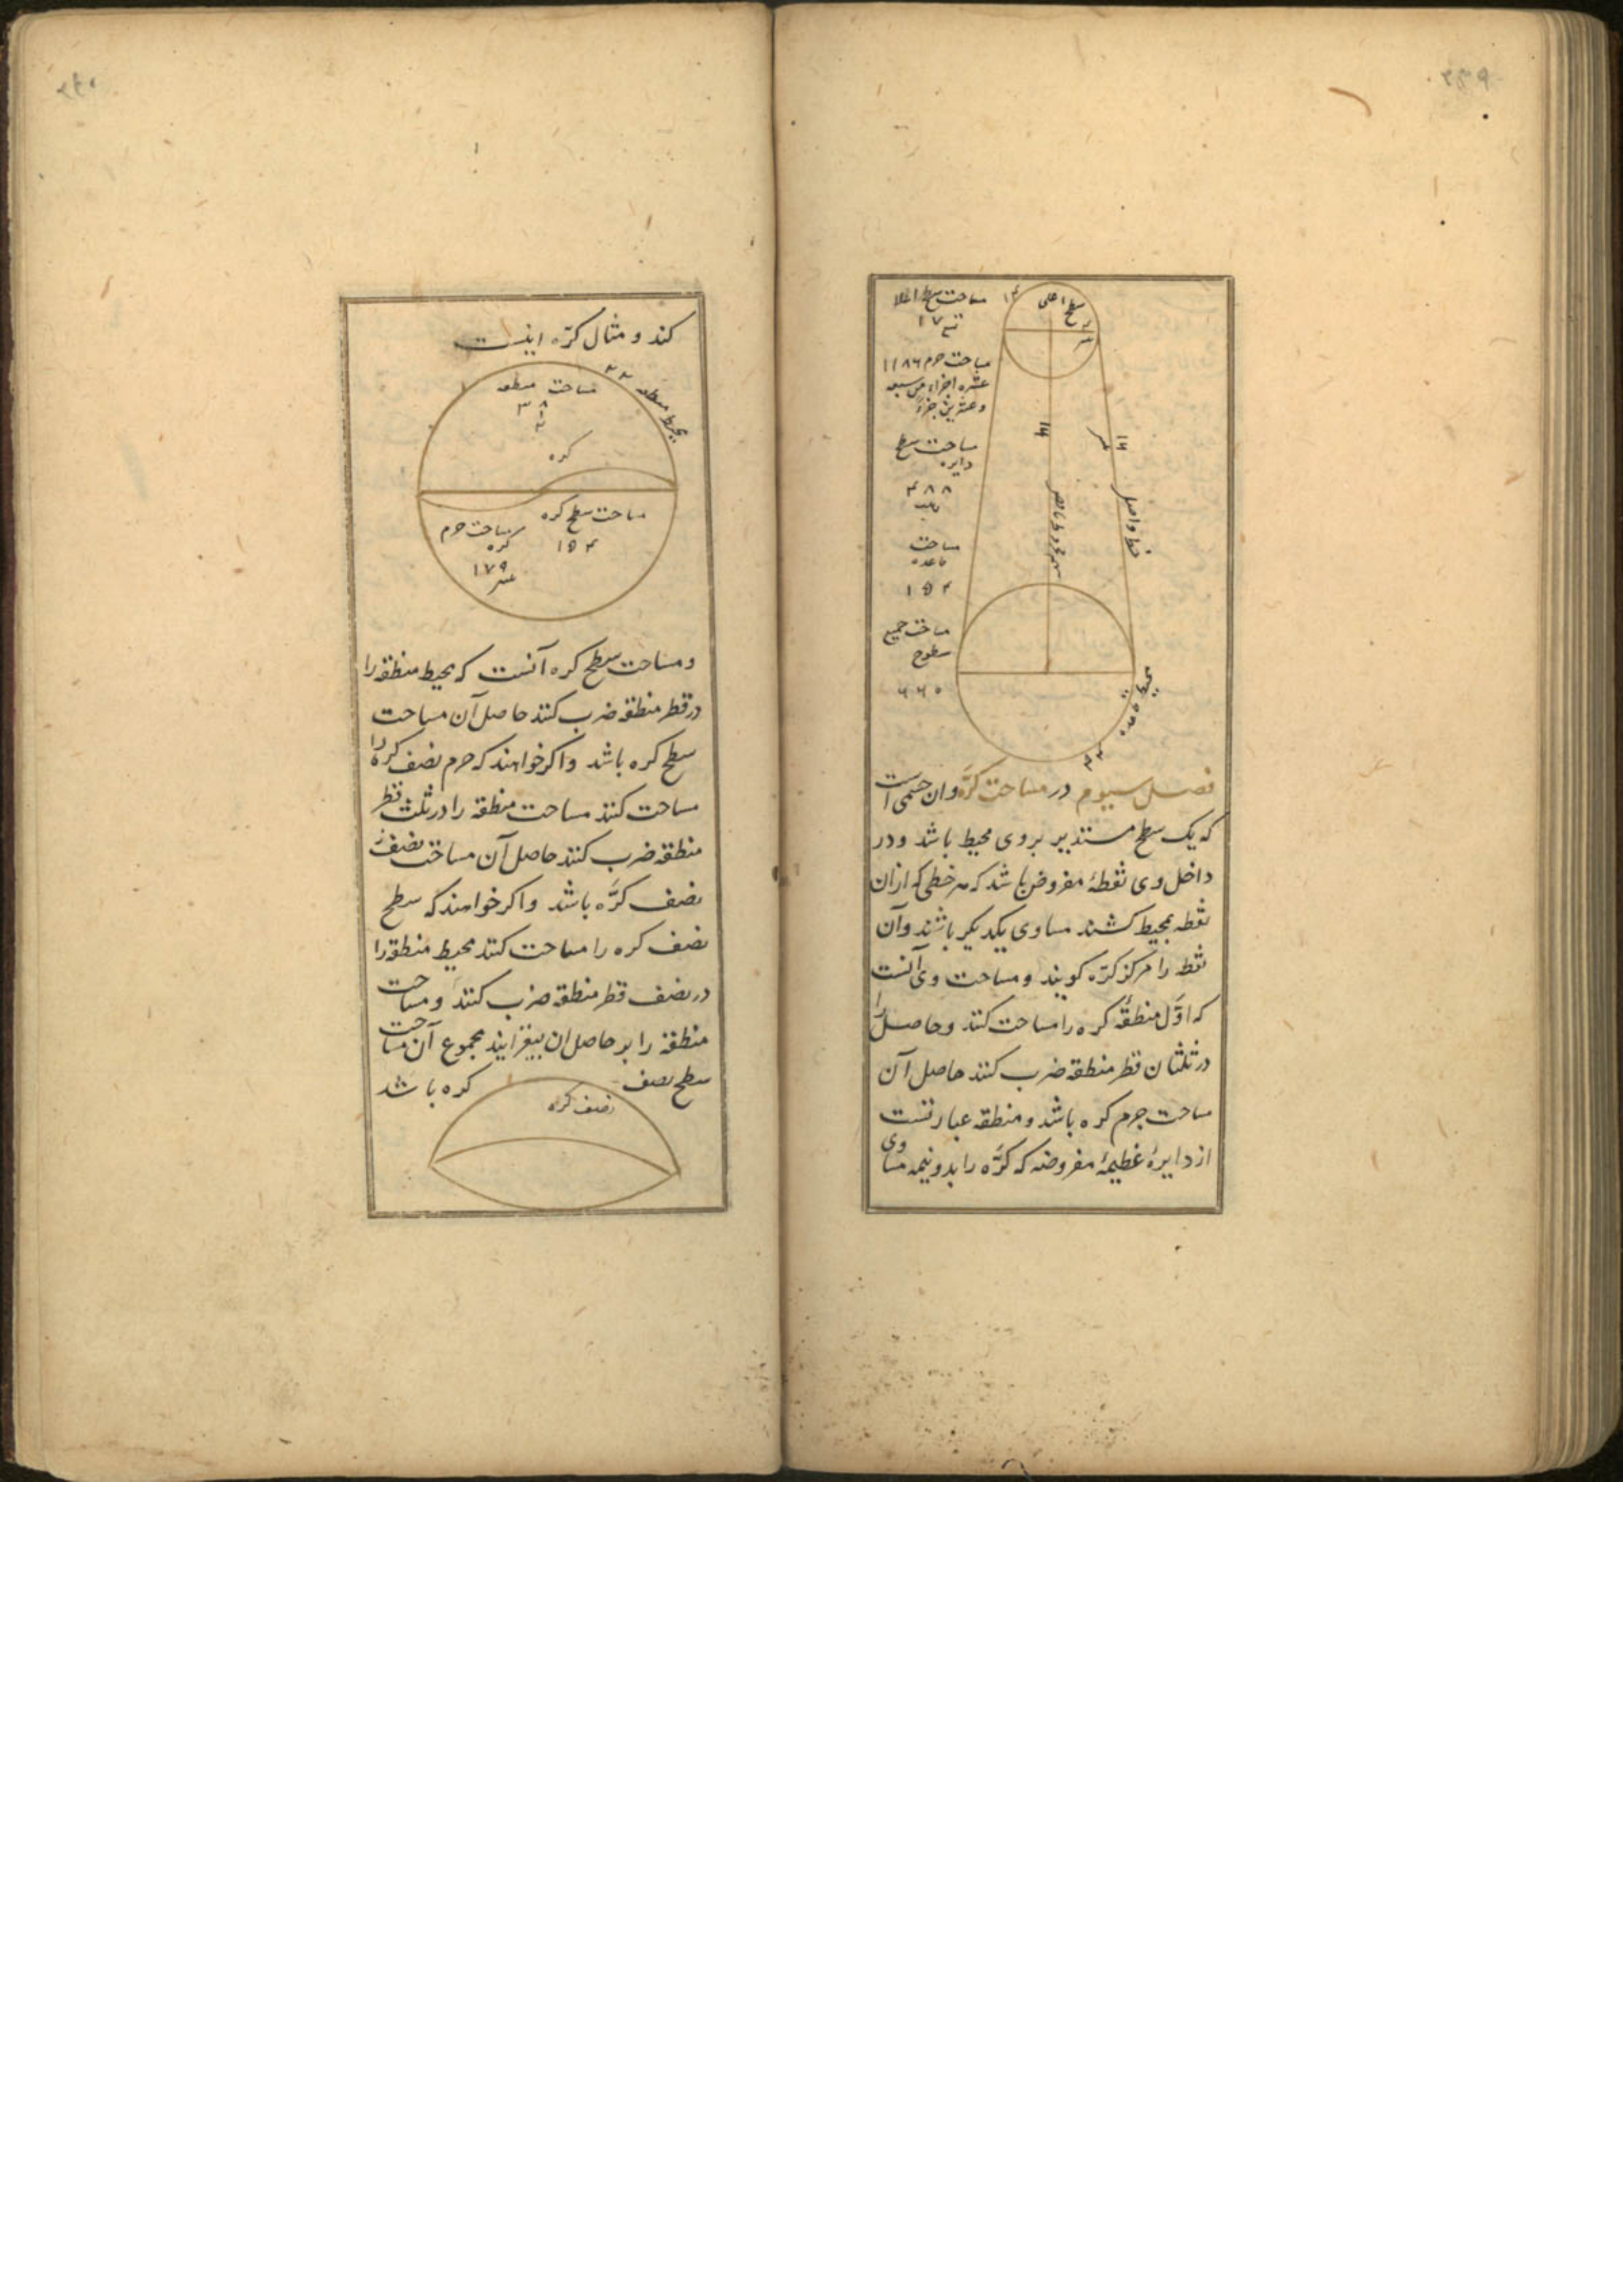 سطح اعلی
مساحت سطح اعلا
۱۷
مساحت جرم ۱۱۸۶
عشره اجزاء من سبعه
وعشرین جزءً
مساحت سطح
دایره
۴۸۸
مساحت
قاعده
۱۵۴
مساحت جمیع
سطوح
۶۶۰
۱۴
۱۴
خط واصل
سهم مخروط ناقص
محیط قاعده
۴۴
فصل سیوم در مساحت کرّه وان جسمی است
که یک سطح مستدیر بروی محیط باشد ودر
داخل وی نقطهٔ مفروض باشد که هر خطی که ازان
نقطه بمحیط کشند مساوی یکدیکر باشند وآن
نقط را مرکز کرّه کویند ومساحت وی آنست
که اوّل منطقهٔ کره را مساحت کنند وحاصل را
در ثلثان قطر منطقه ضرب کنند حاصل آن
مساحت جرم کره باشد ومنطقه عبارتست
از دایرهٔ عظیمهٔ مفروضه که کرّه را بدونیمه مساوی
کند ومثال کرّه اینست
محیط منطقه ۲۲
مساحت منطقه
۳۸
کره
مساحت سطح کره
۱۵۴
مساحت جرم
کره
۱۷۹
ومساحت سطح کره آنست که محیط منطقه را
در قطر منطقه ضرب کنند حاصل آن مساحت
سطح کره باشد واکر خواهند که جرم نصف کره را
مساحت کنند مساحت منطقه را در ثلث قطر
منطقه ضرب کنند حاصل آن مساحت نصف
نصف کرّه باشد واکر خواهند که سطح
نصف کره را مساحت کنند محیط منطقه را
در نصف قطر منطقه ضرب کنند ومساحت
منطقه را بر حاصل ان بیفزایند مجموع آن مساحت
سطح نصف کره باشد
نصف کره